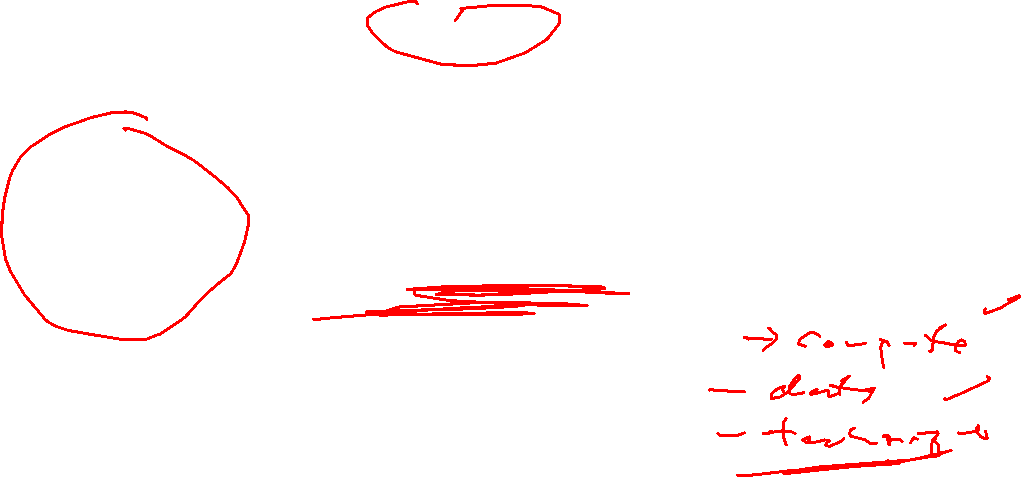 → compute ✓
- data ✓
- technique